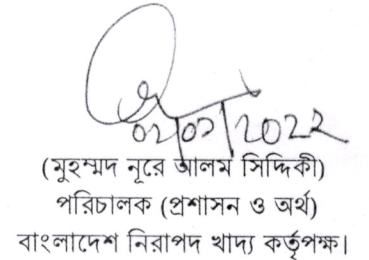 02/03/2022
(মুহম্মদ নূরে আলম সিদ্দিকী)
পরিচালক (প্রশাসন ও অর্থ)
বাংলাদেশ নিরাপদ খাদ্য কর্তৃপক্ষ।